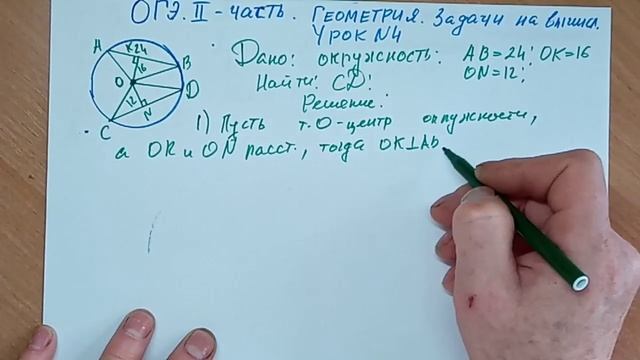 ОГЭ. II - часть. Геометрия. Задачи на вычисл.
Урок №4
Дано: окружность: AB=24; OK=16
ON=12;
Найти: CD!
Решение:
1) Пусть т.О-центр окружности,
а OK и ON расст., тогда OK⊥AB
A
K
24
16
B
O
D
12
N
C